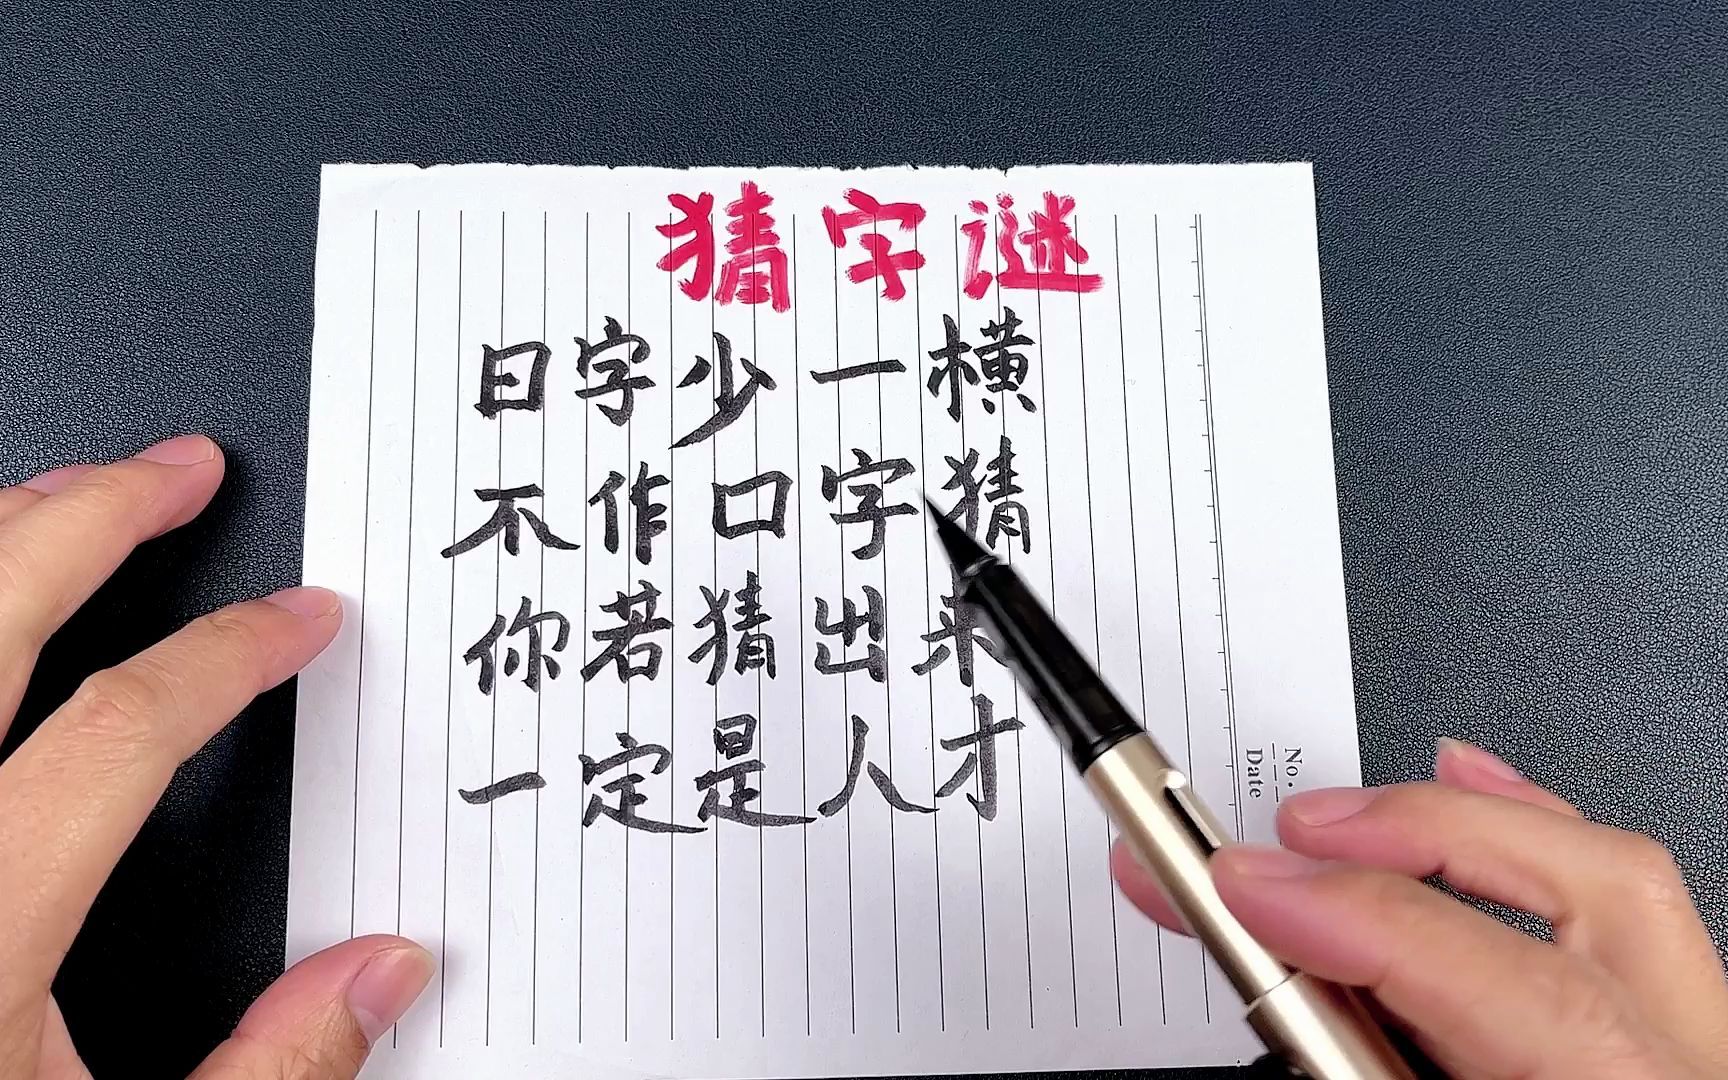 猜字谜
日字少一横
不作口字猜
你若猜出来
一定是人才
No.
Date